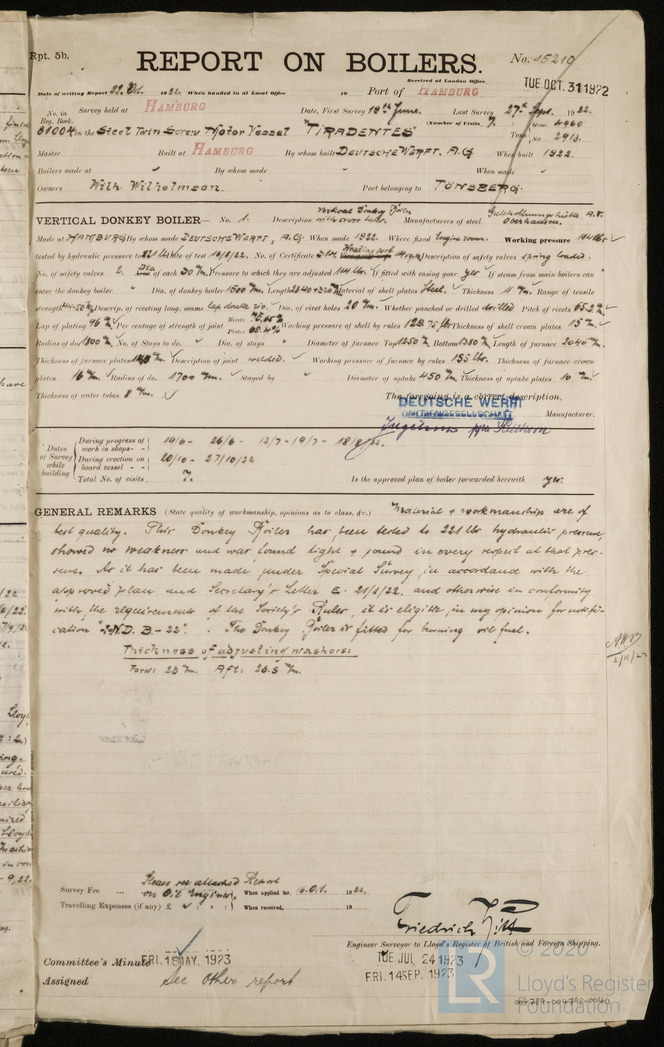 Rpt. 5b.
REPORT ON BOILERS.
No. 15210
Received at London Office
TUE. OCT. 31 1922
Date of writing Report 1922 When handed in at Local Office 19 Port of HAMBURG
No. in Reg. Book. Survey held at HAMBURG Date, First Survey 18th June. Last Survey 27th Sept. 1922.
(Number of Visits 7.)
on the Steel Twin Screw Motor Vessel "TIRADENTES" Tons Gross 4960 Net 2913.
Master Built at HAMBURG By whom built DEUTSCHE WERFT, A.G. When built 1922.
Boilers made at By whom made When made
Owners Wilh. Wilhelmsen. Port belonging to TÖNSBERG.
VERTICAL DONKEY BOILER— No. 1. Description Vertical Donkey Boiler with cross tubes. Manufacturers of steel Gutehoffnungshütte A.V. Oberhausen.
Made at HAMBURG By whom made DEUTSCHE WERFT, A.G. When made 1922. Where fixed Engine room. Working pressure 114 lbs.
tested by hydraulic pressure to 221 lbs Date of test 18/8/22. No. of Certificate Description of safety valves spring loaded.
No. of safety valves 2. Dia. of each 50 m/m. Pressure to which they are adjusted 114 lbs. If fitted with easing gear yes If steam from main boilers can
enter the donkey boiler Dia. of donkey boiler 1500 m/m. Length Material of shell plates Steel. Thickness 11 m/m. Range of tensile
strength 44-50 Descrip. of riveting long. seams lap double riv. Dia. of rivet holes 20 m/m. Whether punched or drilled drilled Pitch of rivets 65.2 m/m
Lap of plating 96 m/m Per centage of strength of joint Rivets 75.65% Plates 69.4% Working pressure of shell by rules 128.75 lbs. Thickness of shell crown plates 15 m/m.
Radius of do. 1800 m/m. No. of Stays to do. Dia. of stays Diameter of furnace Top 1250 Bottom 1380 Length of furnace 2040 m/m.
Thickness of furnace plates Description of joint welded. Working pressure of furnace by rules 155 lbs. Thickness of furnace crown
plates 16 m/m. Radius of do. 1700 m/m. Stayed by Diameter of uptake 450 m/m. Thickness of uptake plates 10 m/m.
Thickness of water tubes 8 m/m. The foregoing is a correct description,
DEUTSCHE WERFT
AKTIENGESELLSCHAFT Manufacturer.
Dates of Survey while building
During progress of work in shops - - 19/6 - 26/6 - 12/7 - 19/7 - 18/8/22.
During erection on board vessel - - - 20/10 - 27/10/22
Total No. of visits 7. Is the approved plan of boiler forwarded herewith yes.
GENERAL REMARKS (State quality of workmanship, opinions as to class, &c.) Material & workmanship are of
best quality. This Donkey Boiler has been tested to 221 lbs hydraulic pressure,
showed no weakness and was found tight & sound in every respect at that pres-
sure. As it has been made under Special Survey, in accordance with the
approved plan and Secretary's Letter E. 21/8/22. and otherwise in conformity
with the requirements of the Society's Rules, it is eligible, in my opinion for notifi-
cation "N.D.B.-22". The Donkey Boiler is fitted for burning oil fuel.
Thickness of adjusting washers:
Forw: 28 m/m. Aft: 28.5 m/m.
Survey Fee ... Please see attached Report on Oil Engines. When applied for, 1922.
Travelling Expenses (if any) £ When received, 19
Friedrich
Engineer Surveyor to Lloyd's Register of British and Foreign Shipping.
Committee's Minute FRI. 18 MAY. 1923 TUE. JUL. 24 1923
FRI. 14 SEP. 1923
Assigned See other report
© 2020
LR
Lloyd's Register
Foundation